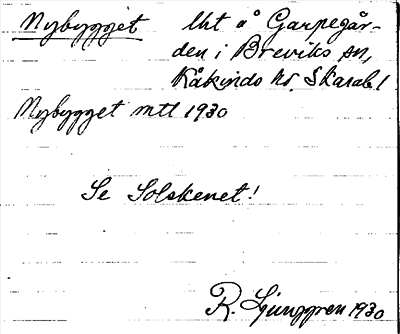 Nybygget lht å Garpegår-
den i Breviks sn,
Kåkinds hd. Skarab. l
Nybygget mtl 1930
Se Solskenet!
R. Ljunggren 1930